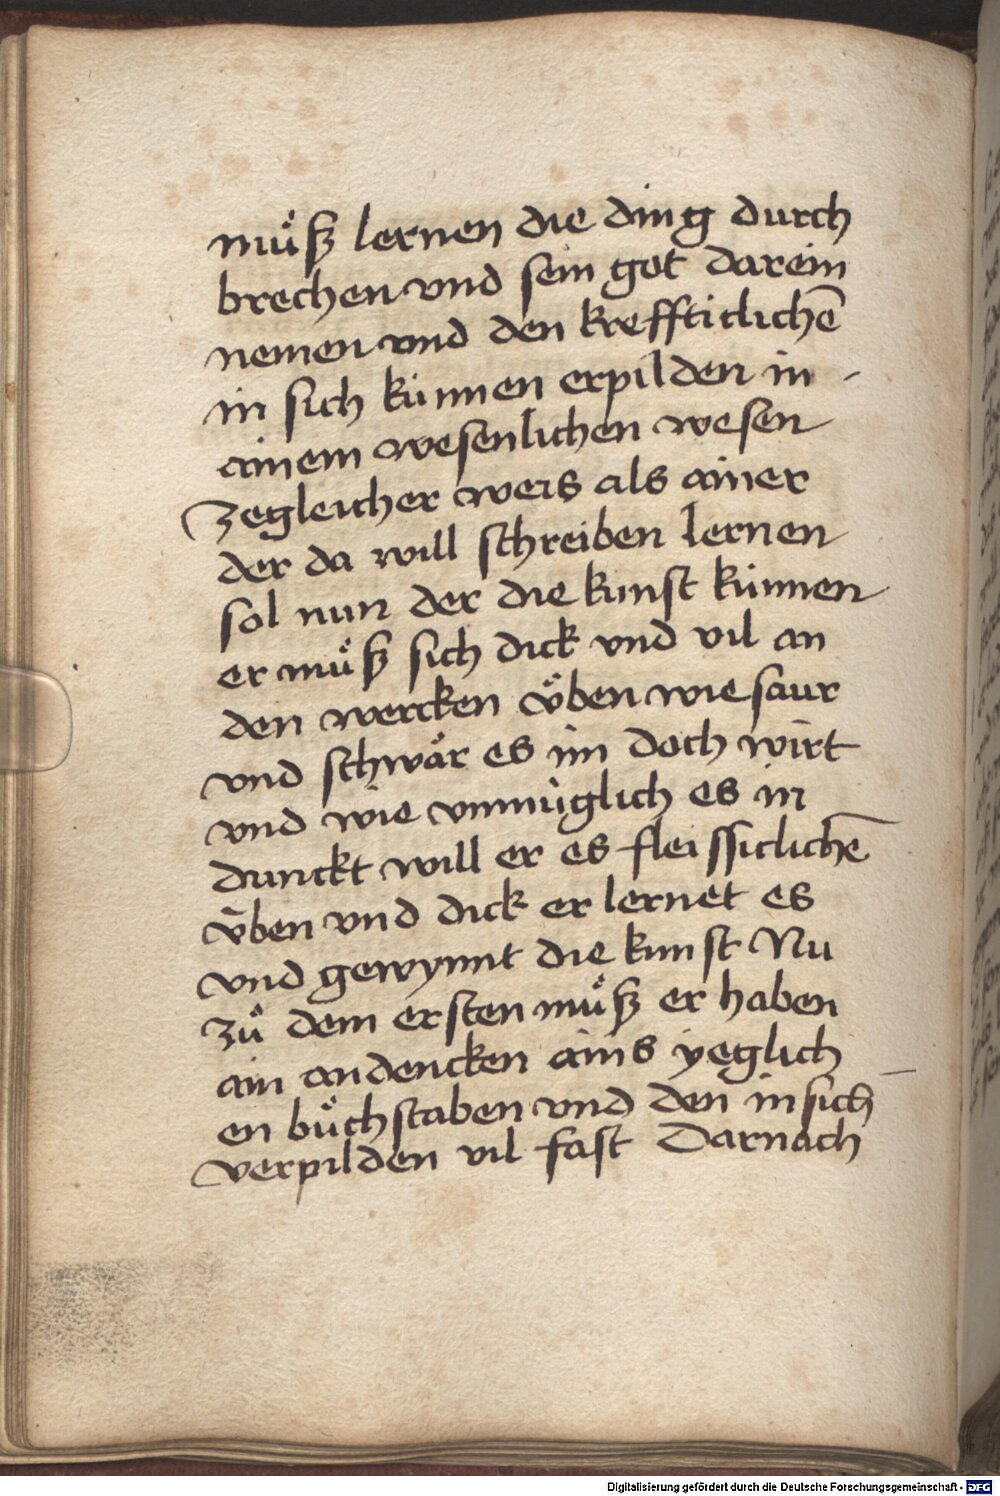 muͦß lernen die ding durch
brechen vnd sein got darein
nemen vnd den kreffticlichē
in sich kúnnen erpilden in -
ainem wesenlichen wesen
zegleicher weis als ainer
der da will schreiben lernen
sol nun der die kunst kúnnen
er muͦß sich dick vnd vil an
den wercken v̈ben wie saur
vnd schwär es im doch wirt
vnd wie vnmúglich es in
dunckt will er es fleissiclichē
v̈ben vnd dick er lernet es
vnd gewynnt die kunst Nu
zuͦ dem ersten muͦß er haben
ain andencken ains yeglich
en buͦchstaben vnd den in sich
verpilden vil fast Darnach
Digitalisierung gefördert durch die Deutsche Forschungsgemeinschaft - DFG